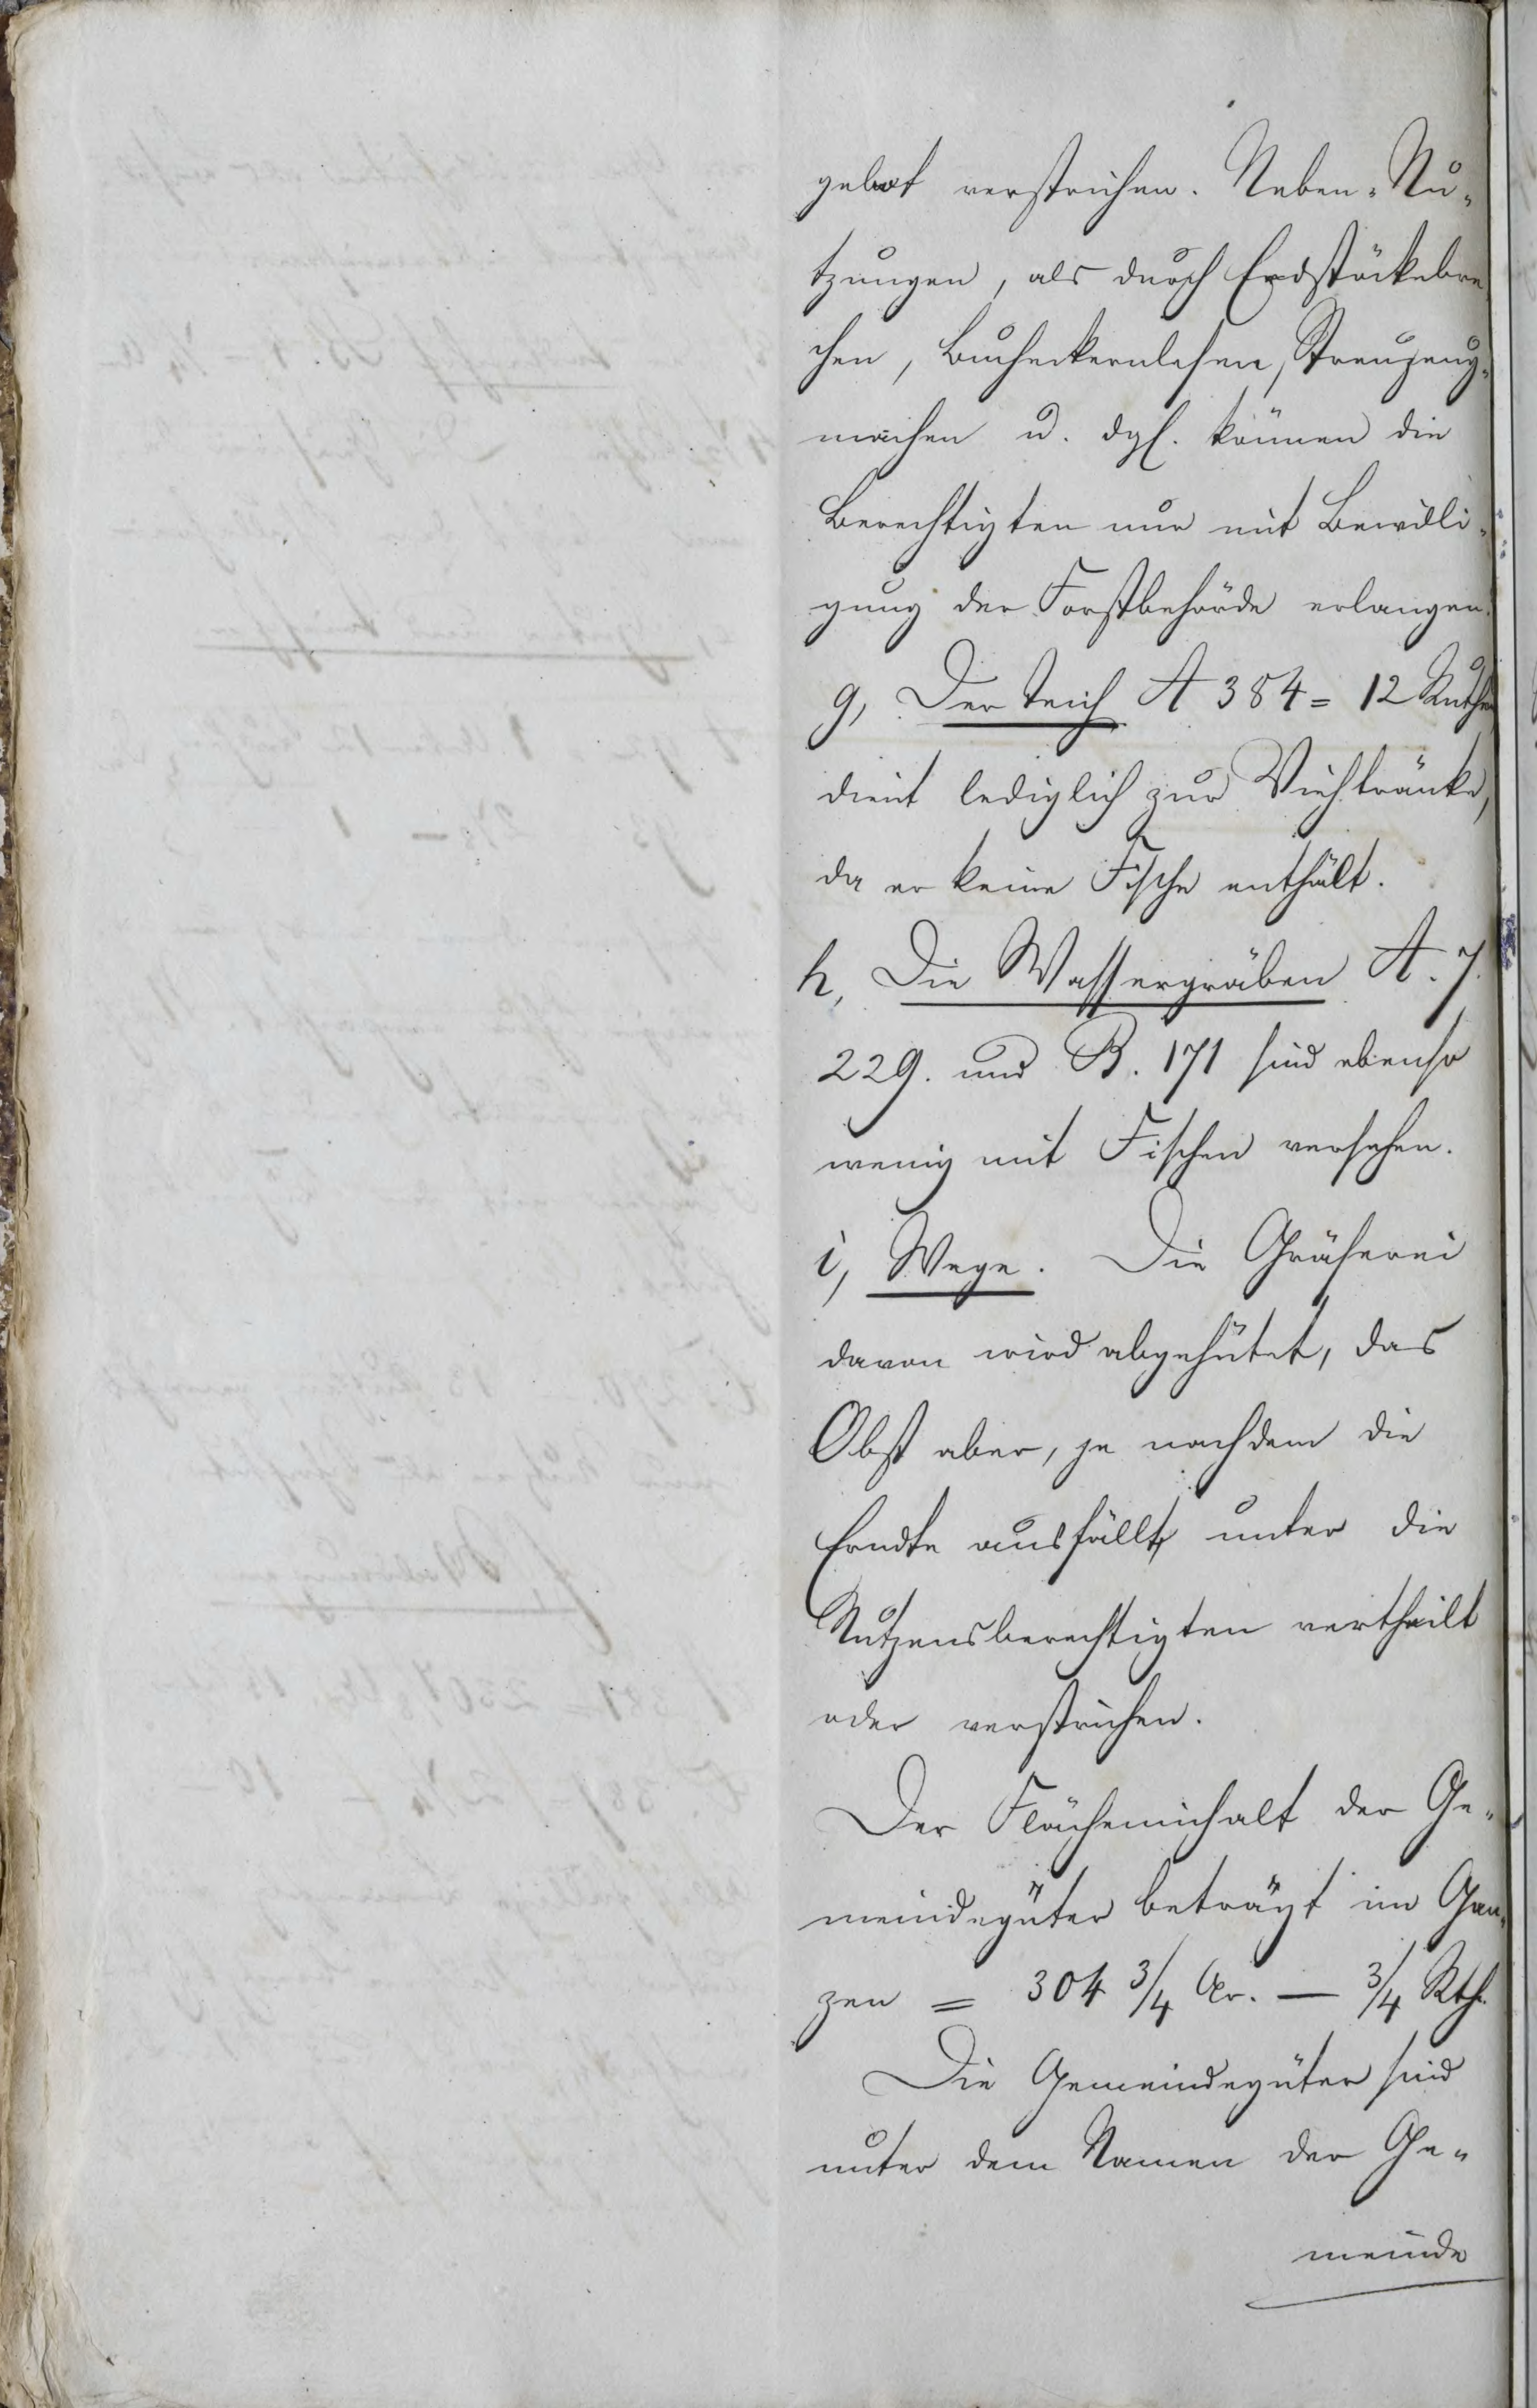 gebot verstrichen. Neben-Nu-
tzungen, als durch Erdstöckebre
chen, Bucheckernlesen, Streugeny-
machen u. dgl. können die
Berechtigten nur mit Bewilli-
gung der Forstbehörde erlangen.
g, Der Teich A 384 = 12 Ruthen
dient lediglich zur Viehtränke,
da er keine Fische enthält.
h, Die Wassergräben A. 7.
229. und B. 171 sind ebenso
wenig mit Fischen versehen.
i, Wege. Die Gräserei
davon wird abgehütet, das
Obst aber, je nachdem die
Erndte ausfällt, unter die
Nutzensberechtigten vertheilt
oder verstrichen.
Der Flächeninhalt der Ge-
meindegüter beträgt im Gan-
zen = 304 3/4 Ar. — 3/4 Rth.
Die Gemeindegüter sind
unter dem Namen der Ge-
meinde